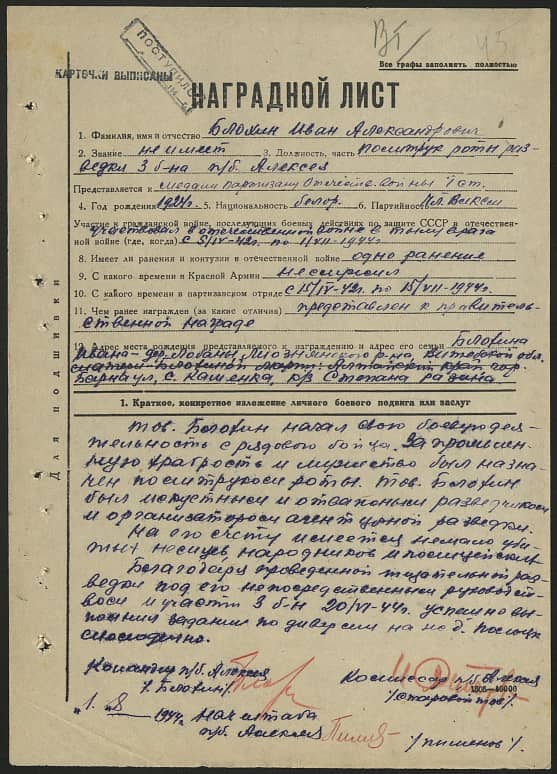 ВТ
45
ПОСТУПИЛО
Все графы заполнять полностью
КАРТОЧКИ ВЫПИСАНЫ
НАГРАДНОЙ ЛИСТ
1. Фамилия, имя и отчество Блохин Иван Александрович
2. Звание не имеет 3. Должность, часть политрук роты раз
ведки 3 б-на п/б. Алексея
Представляется к медали Партизану Отечествен. войны I ст.
4. Год рождения 1924г. 5. Национальность белор. 6. Партийность чл. ВЛКСМ
Участие в гражданской войне, последующих боевых действиях по защите СССР и отечествен-
участвовал в отечественной войне в тылу врага
ной войне (где, когда) с 5/IV-42г. по 1/VII-1944г.
8. Имеет ли ранения и контузии в отечественной войне одно ранение
9. С какого времени в Красной Армии не служил
10. С какого времени в партизанском отряде с 15/IV-42г. по 15/VII-1944г.
11. Чем ранее награжден (за какие отличия) представлен к правитель-
ственной награде
12. Адрес места рождения представляемого к награждению и адрес его семьи Блохина
Ивана - дер. Лобаны, Лиознянского р-на, Витебской обл.
матери - Блохиной Алтайский край гор.
Барнаул, с. Кашенка, к/з Степана Разина
Для подшивки
1. Краткое, конкретное изложение личного боевого подвига или заслуг
Тов. Блохин начал свою боевую дея-
тельность с рядового бойца. За проявлен-
ную храбрость и мужество был назна-
чен политруком роты. Тов. Блохин
был искустным и отважным разведчиком
и организатором агентурной разведки.
На его счету имеется немало уби-
тых немцев, народников и полицейских.
Благодаря проведенной тщательной раз-
ведки под его непосредственным руководст-
вом и участии 3 б-н 20/VI-44г. успешно вы-
полнил задание по диверсии на ж.д. Полоцк
Молодечно.
Командир п/б. Алексея
/. Блохин/.
Комиссар п/б Алексея
1505-40000
/Старовойтов/.
"1" 8 1944г. Нач штаба
п/б. Алексея
/Пименов/.